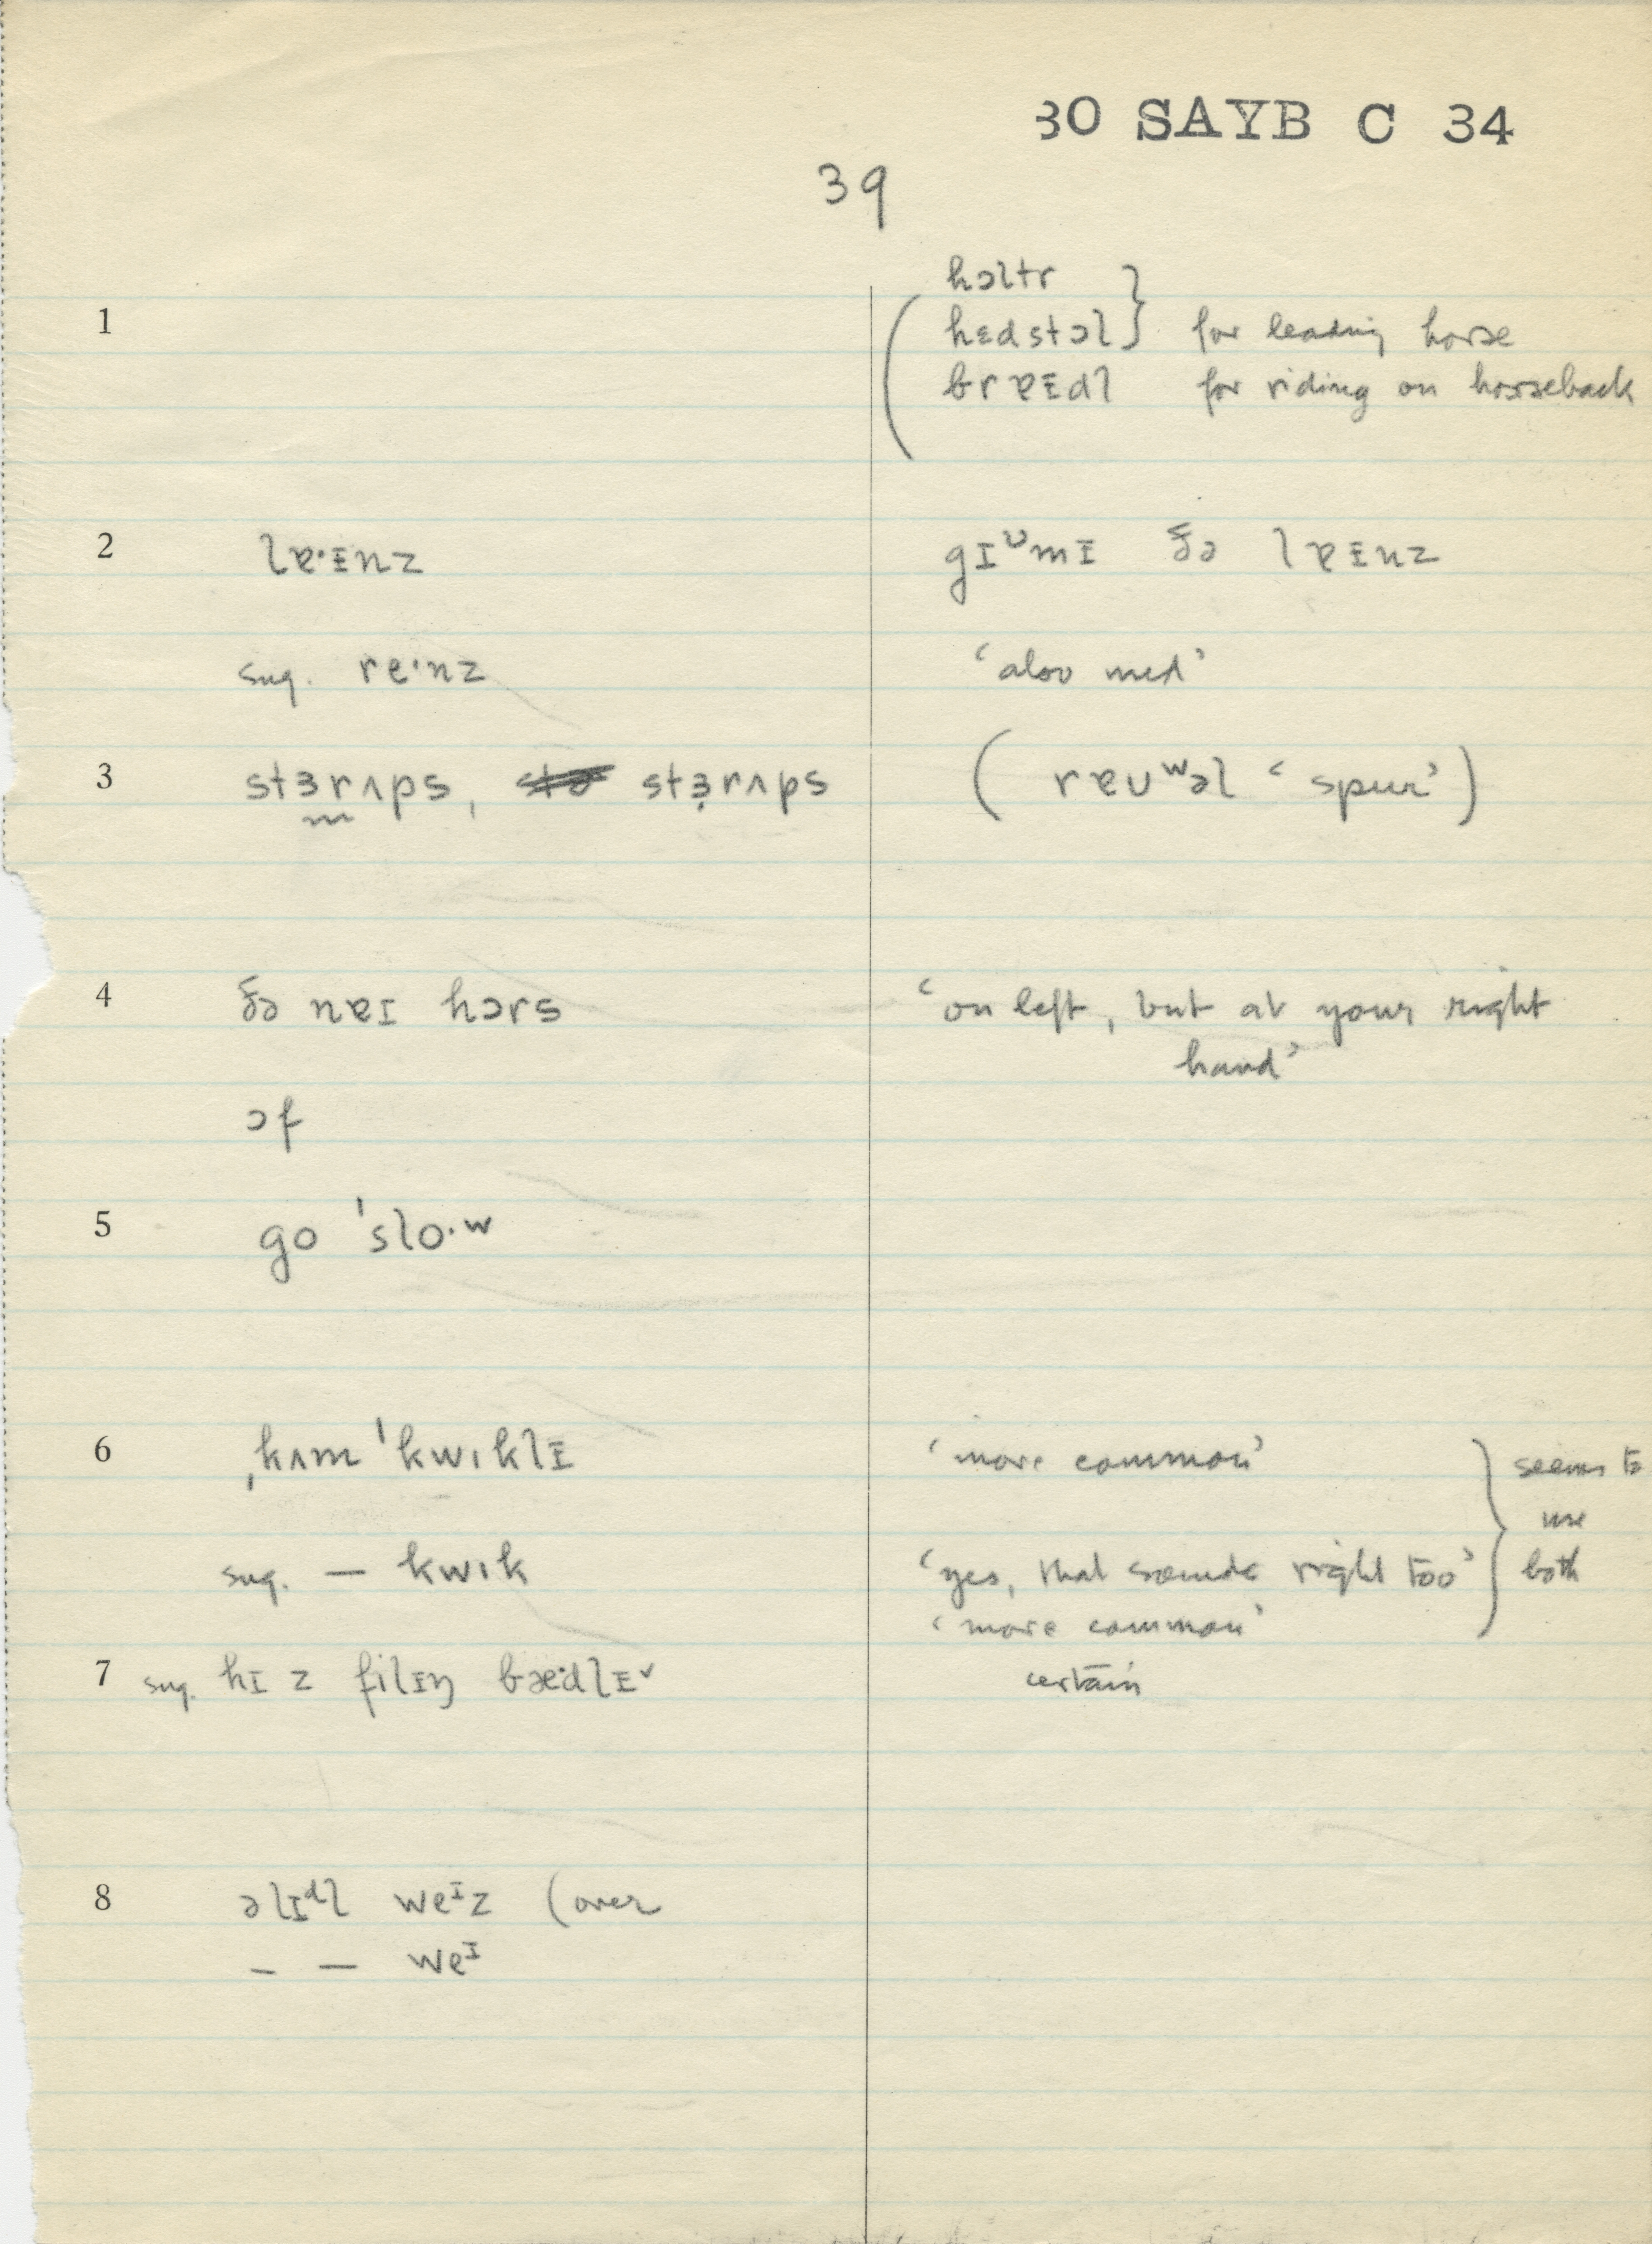 30 SAYB C 34
39
hɔltr
1 hɛdstɔl } for leading horse
brɐɪdl for riding on horseback
2 lɐ·ɪnz gɪᶸmɪ ðə lɐɪnz
sug. re·nz ‘also used’
3 stɜrʌps, stɜ̣rʌps ( rɐuʷəl ‘spur’ )
4 ðə nɐɪ hɔrs ‘on left, but at your right
hand’
ɔf
5 go ˈslo·ʷ
6 ˌkʌm ˈkwɪklɪ ‘more common’ } seems to
use
sug. — kwɪk ‘yes, that sounds right too’ both
‘more common’
7 sug. hɪ z filɪŋ bæ·dlɪ˅ certain
8 əlɪᵈl weᶦz (over
– — weᶦ